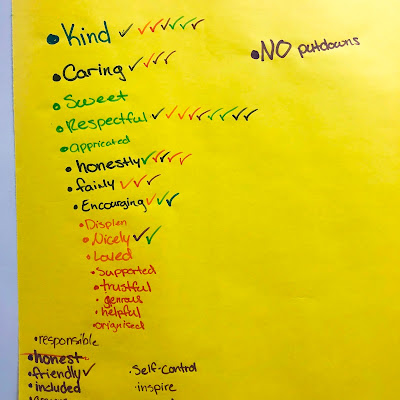 •Kind ✓ ✓ ✓ ✓ ✓ ✓
•NO putdowns
•Caring ✓ ✓ ✓ ✓
•Sweet
•Respectful ✓ ✓ ✓ ✓ ✓ ✓ ✓ ✓ ✓
•appricated
•honestly ✓ ✓ ✓ ✓ ✓
•fairly ✓ ✓ ✓
•Encouraging ✓ ✓ ✓
•Displen
•Nicely ✓ ✓
•Loved
•Supported
•trustful
•genrous
•helpful
•orignised
•responsible
•honest
•friendly ✓
•Self-Control
•included
•inspire